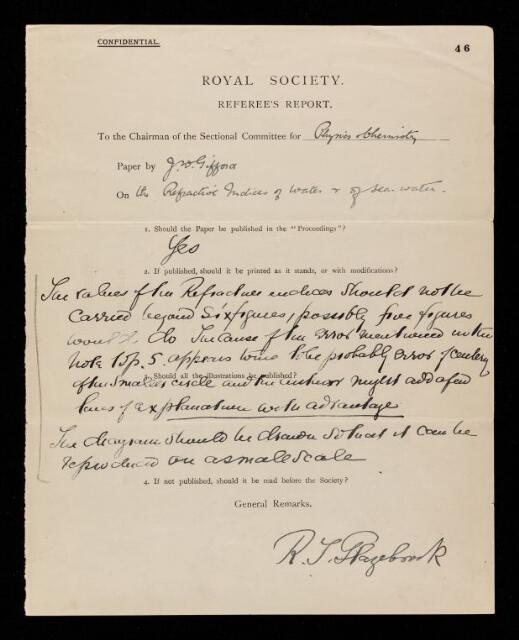 CONFIDENTIAL.
46
ROYAL SOCIETY.
REFEREE'S REPORT.
To the Chairman of the Sectional Committee for Physics & Chemistry
Paper by J. W. Gifford
On the Refractive Indices of water & of sea-water.
1. Should the Paper be published in the "Proceedings"?
Yes
2. If published, should it be printed as it stands, or with modifications?
The values of the Refractive indices should not be
carried beyond six figures, possibly five figures
would do The cause of the error mentioned in the
note to p. 5. appears to me to be probably error of
of the smaller circle and the author might add a few
3. Should all the illustrations be published?
lines of explanation with advantage
The diagram should be drawn so that it can be
reproduced on a small scale
4. If not published, should it be read before the Society?
General Remarks.
R. T. Glazebrook